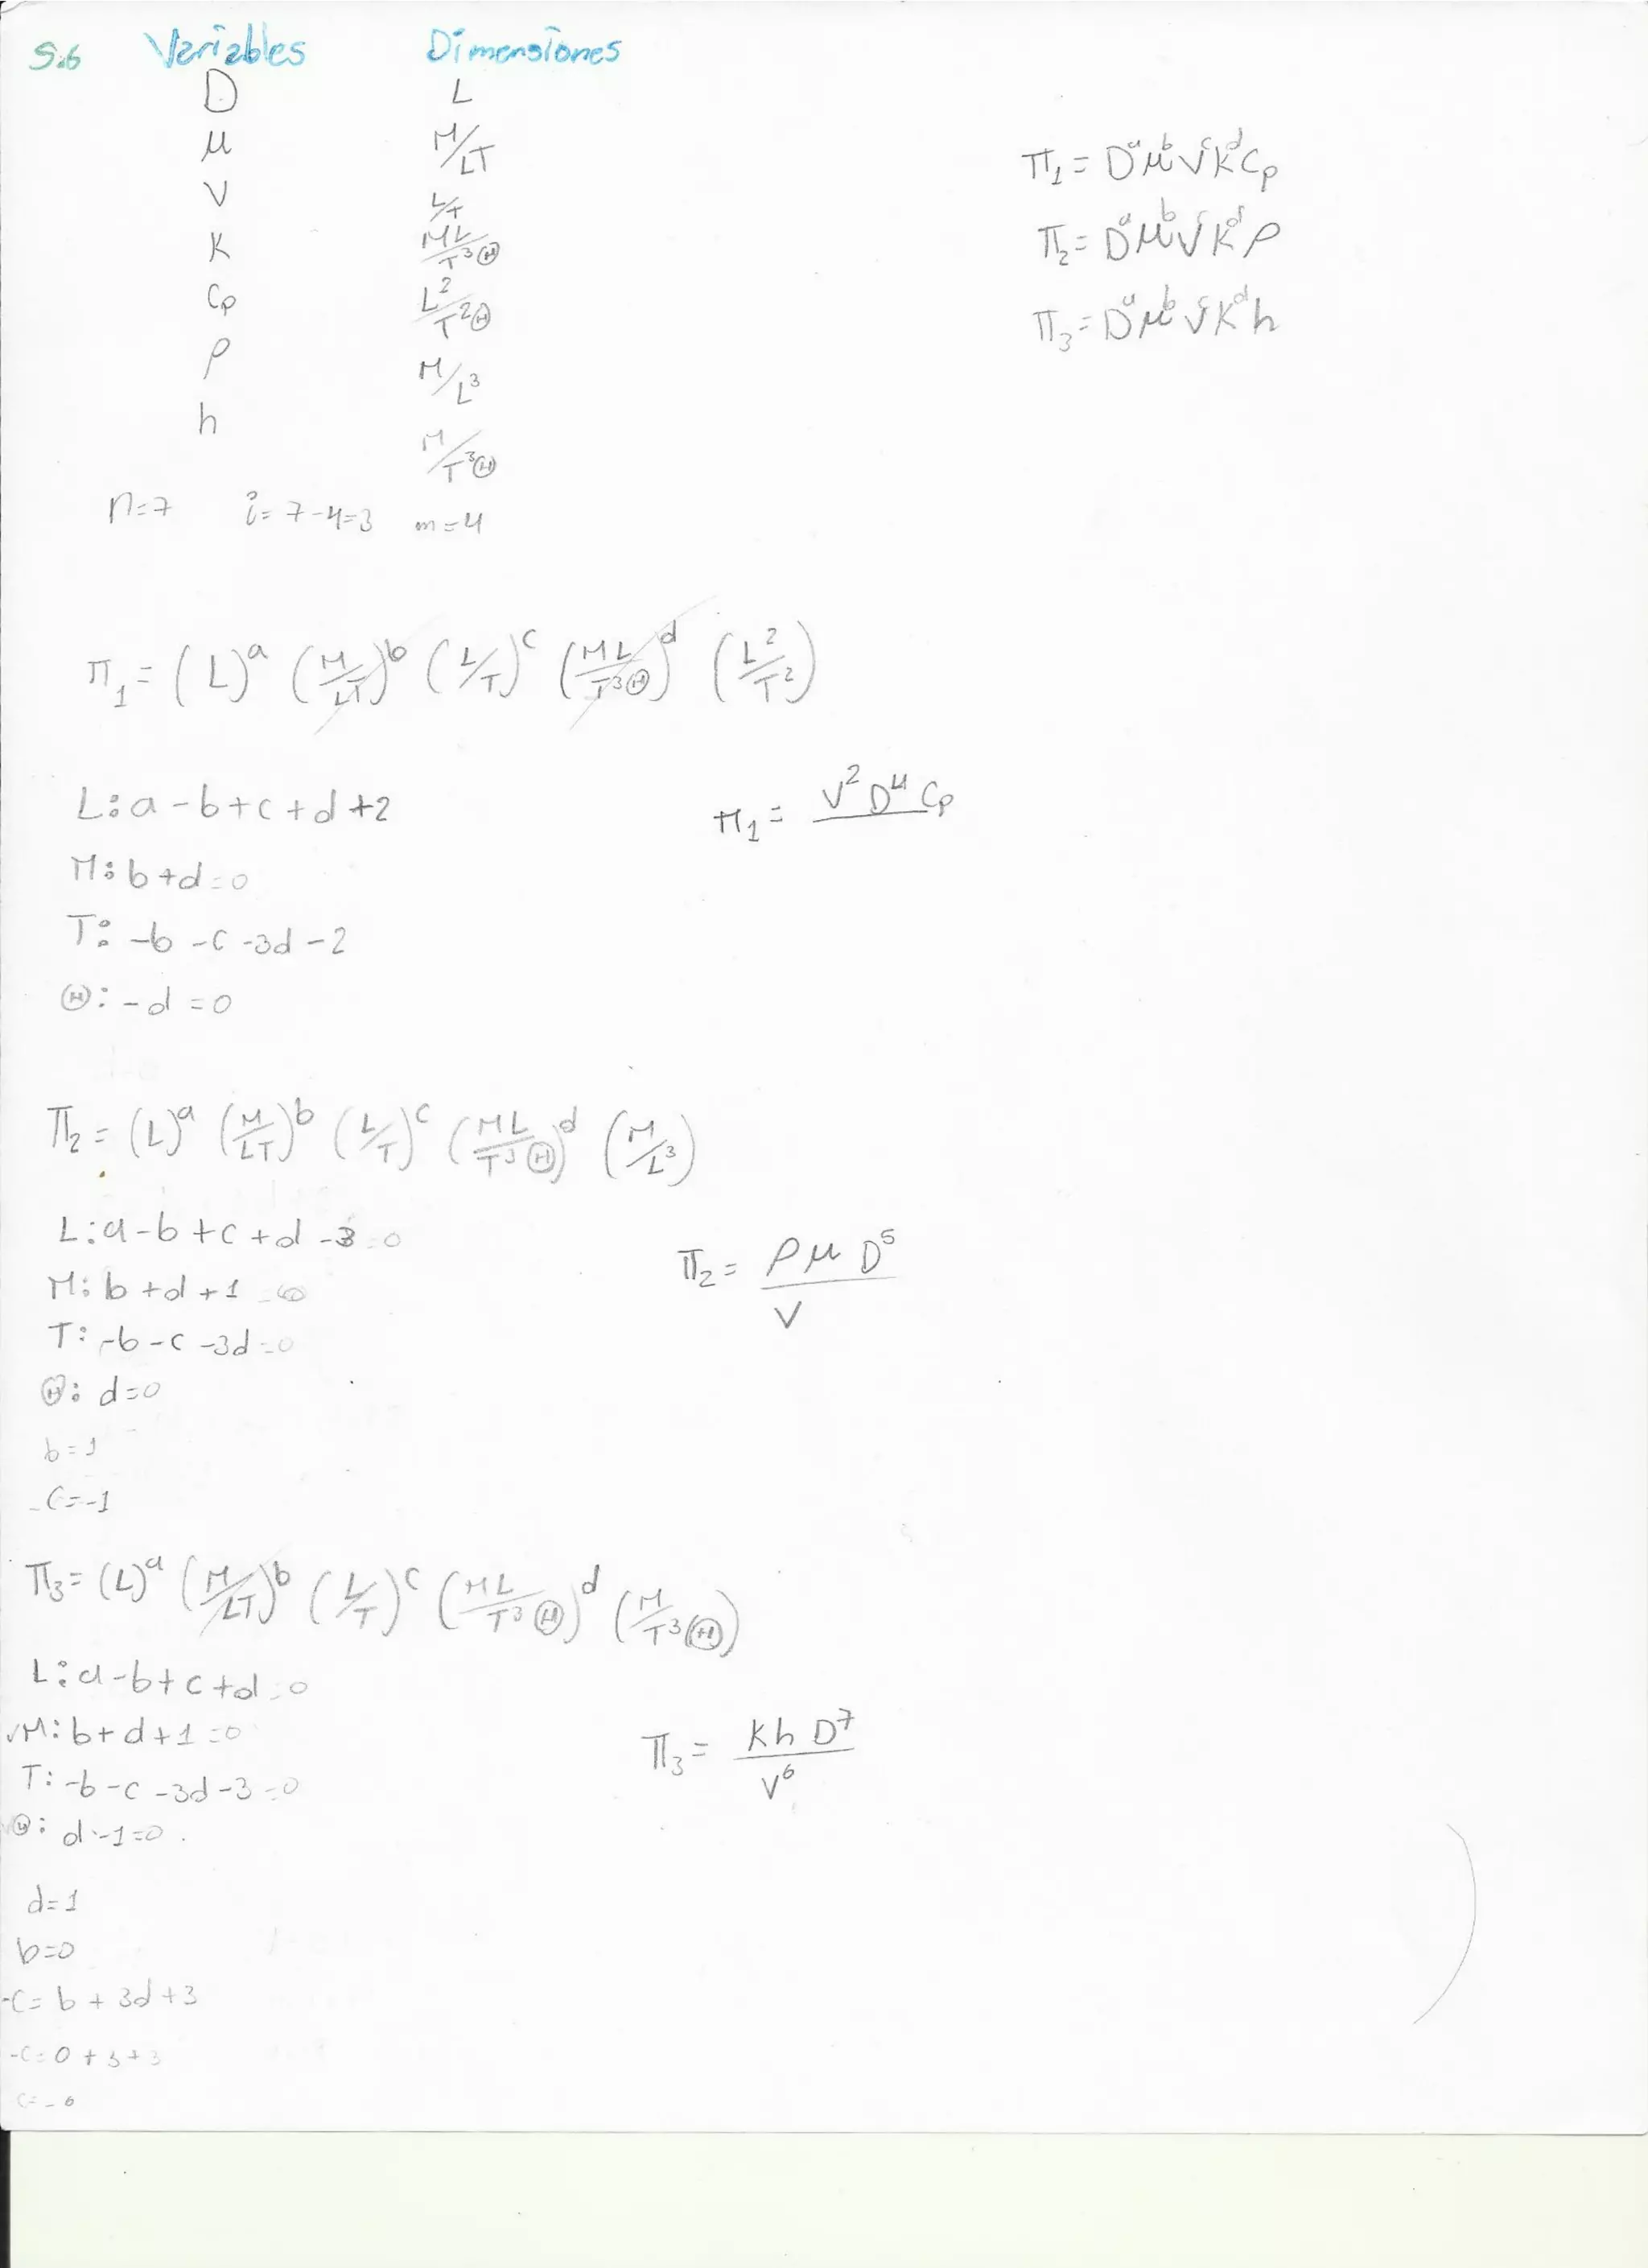 5.6 Variables Dimensiones
D L
μ M/LT
V L/T
K ML/T³Θ
Cp L²/T²Θ
ρ M/L³
h M/T³Θ
n=7 i=7-4=3 m=4
π₁= Dᵃ μᵇ Vᶜ Kᵈ Cp
π₂= Dᵃ μᵇ Vᶜ Kᵈ ρ
π₃= Dᵃ μᵇ Vᶜ Kᵈ h
π₁= (L)ᵃ (M/LT)ᵇ (L/T)ᶜ (ML/T³Θ)ᵈ (L²/T²)
L: a-b+c+d+2
M: b+d=0
T: -b-c-3d-2
Θ: -d=0
π₁= V² D⁴ Cp
π₂= (L)ᵃ (M/LT)ᵇ (L/T)ᶜ (ML/T³Θ)ᵈ (M/L³)
L: a-b+c+d-3=0
M: b+d+1=0
T: -b-c-3d=0
Θ: d=0
b=1
-c=-1
π₂= ρ μ D⁵ / V
π₃= (L)ᵃ (M/LT)ᵇ (L/T)ᶜ (ML/T³Θ)ᵈ (M/T³Θ)
L: a-b+c+d=0
√M: b+d+1=0
T: -b-c-3d-3=0
Θ: d-1=0
d=1
b=0
-c= b+3d+3
-c= 0+3+3
c=-6
π₃= K h D⁷ / V⁶